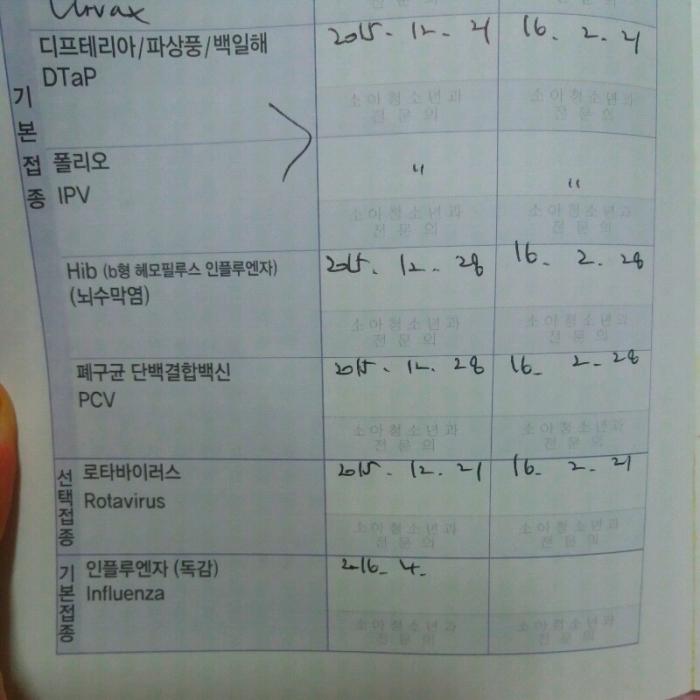 디프테리아/파상풍/백일해 2015. 12. 21 16. 2. 21
DTaP
소아청소년과 소아청소년과
전문의 전문의
기본접종
폴리오 〃 〃
IPV
소아청소년과 소아청소년과
전문의 전문의
Hib (b형 헤모필루스 인플루엔자) 2015. 12. 28 16. 2. 28
(뇌수막염)
소아청소년과 소아청소년과
전문의 전문의
폐구균 단백결합백신 2015. 12. 28 16. 2. 28
PCV
소아청소년과 소아청소년과
전문의 전문의
선택접종
로타바이러스 2015. 12. 21 16. 2. 21
Rotavirus
소아청소년과 소아청소년과
전문의 전문의
기본접종
인플루엔자 (독감) 2016. 4.
Influenza
소아청소년과 소아청소년과
전문의 전문의